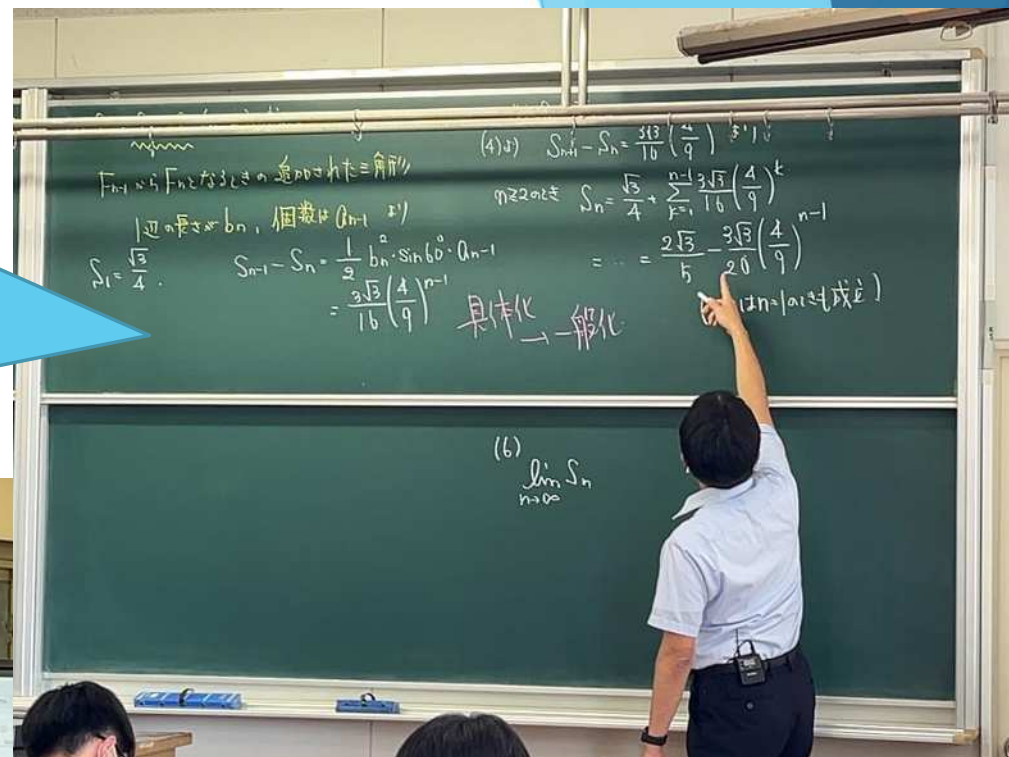 Fn-1からFnとなるときの追加された三角形の
1辺の長さがbn, 個数はan-1 より
S₁ = √3/4. Sn-1 - Sn = 1/2 bn²·sin60°·an-1
= 3√3/16 (4/9)^(n-1)
具体化
→一般化
(4)より Sn+1 - Sn = 3√3/16 (4/9) より
n≧2のとき Sn = √3/4 + Σ_{k=1}^{n-1} 3√3/16 (4/9)^k
= … = 2√3/5 - 3√3/20 (4/9)^(n-1)
はn=1のときも成立)
(6)
lim_{n→∞} Sn